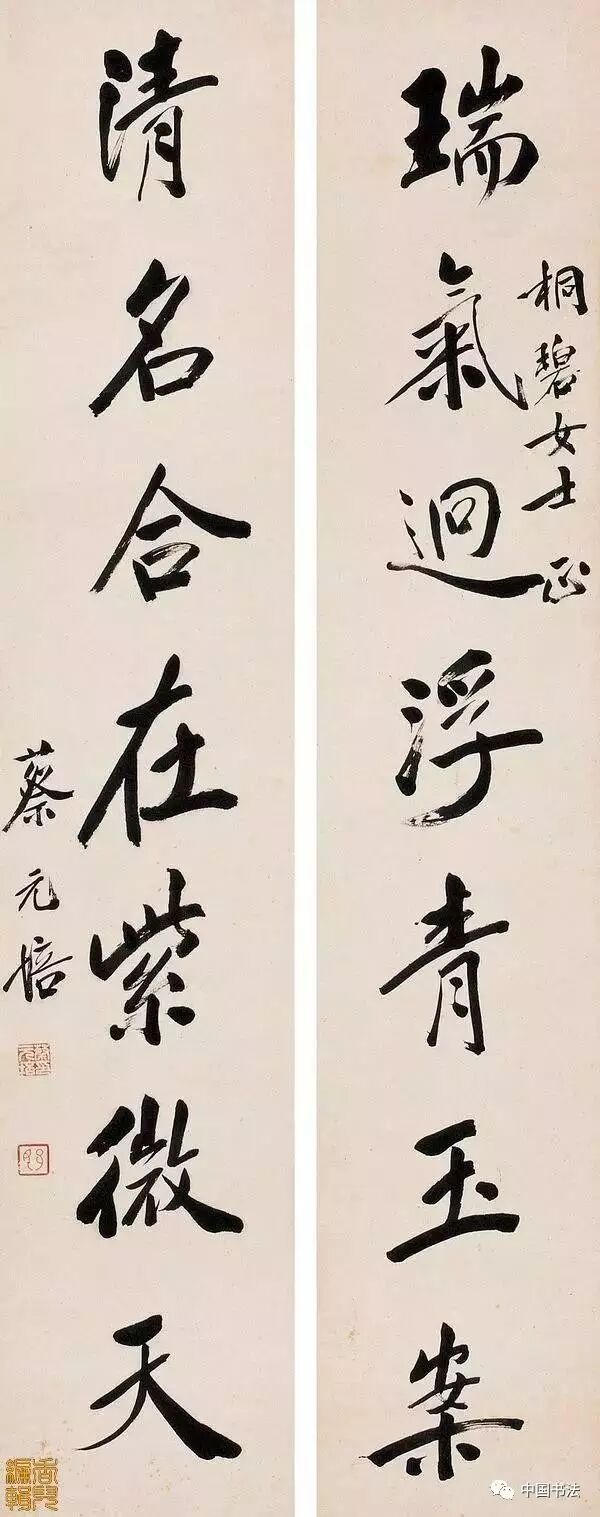 桐碧女士正
瑞氣迴浮青玉案
清名合在紫微天
蔡元培
中国书法